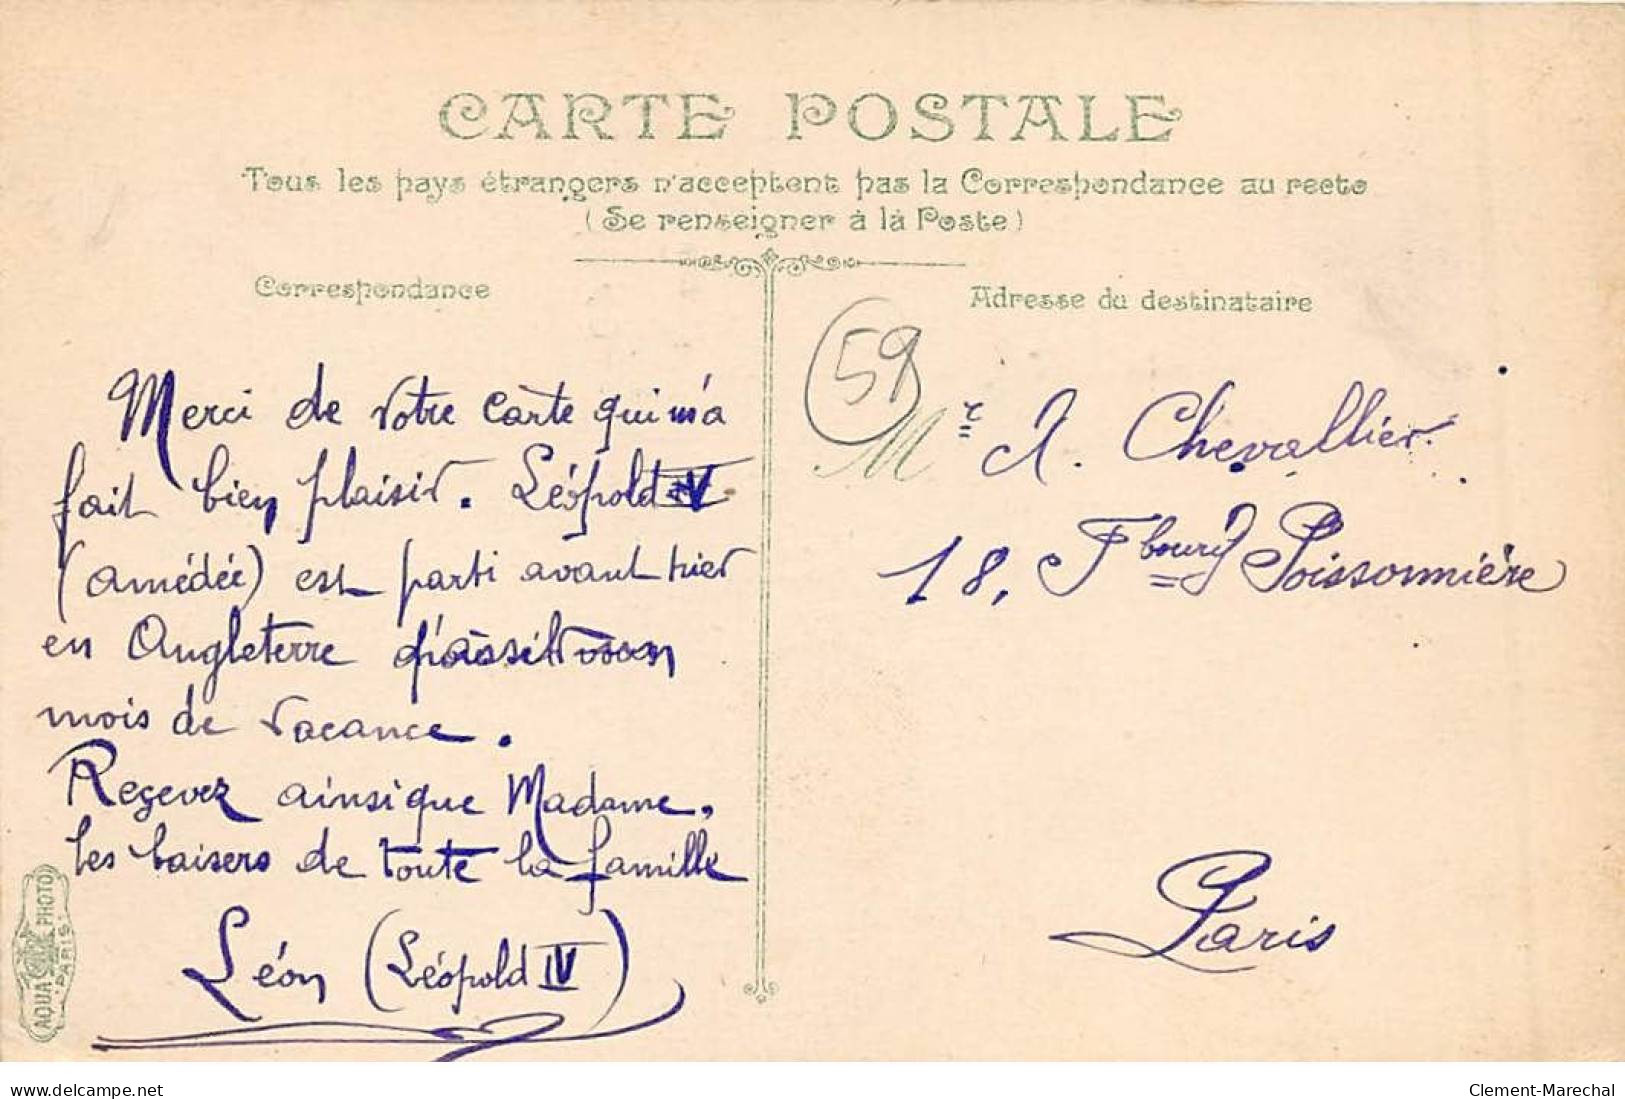 CARTE POSTALE
Tous les pays étrangers n'acceptent pas la Correspondance au recto
(Se renseigner à la Poste)
Correspondance
Adresse du destinataire
59
Merci de votre carte qui m'a
fait bien plaisir. Léopold IV
(Amédée) est parti avant hier
en Angleterre
mois de vacance.
Reçevez ainsi que Madame,
les baisers de toute la famille
Léon (Léopold IV)
Mr A. Chevallier
18, Fbourg Poissonnière
Paris
AQUA PHOTO
PARIS
delcampe.net
Clement-Marechal